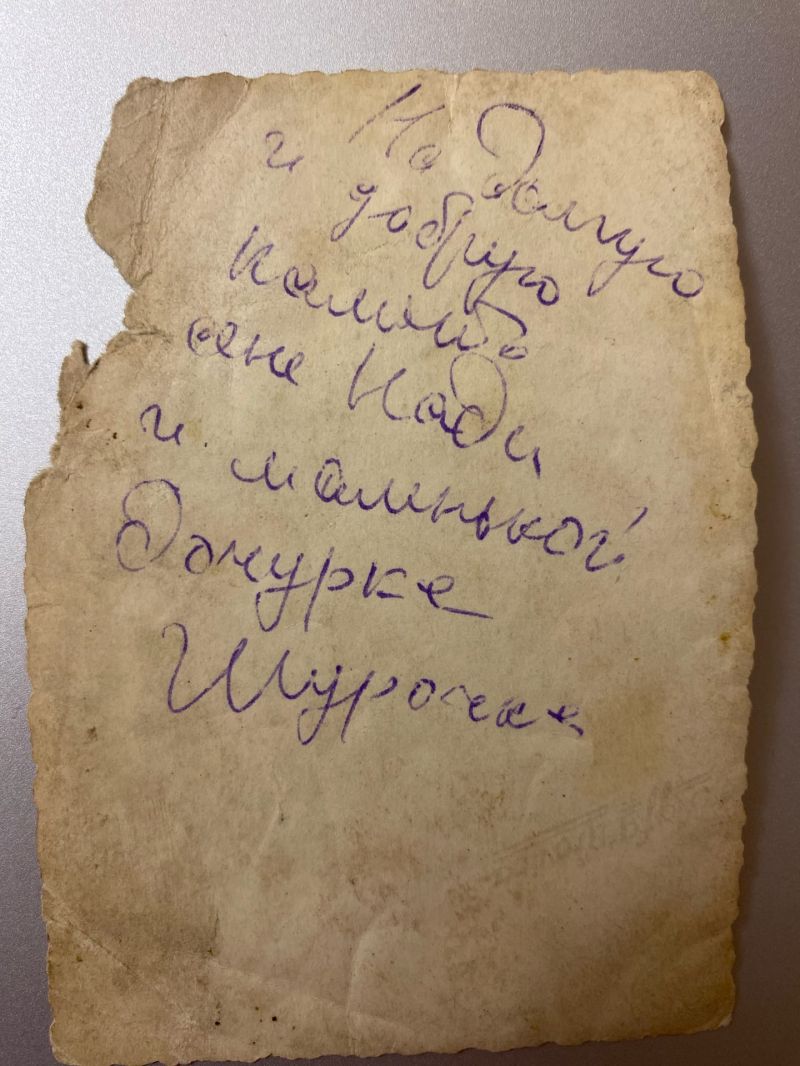 На долгую
и добрую
паметь
жене Нади
и маленькой
дочурке
Шурочке